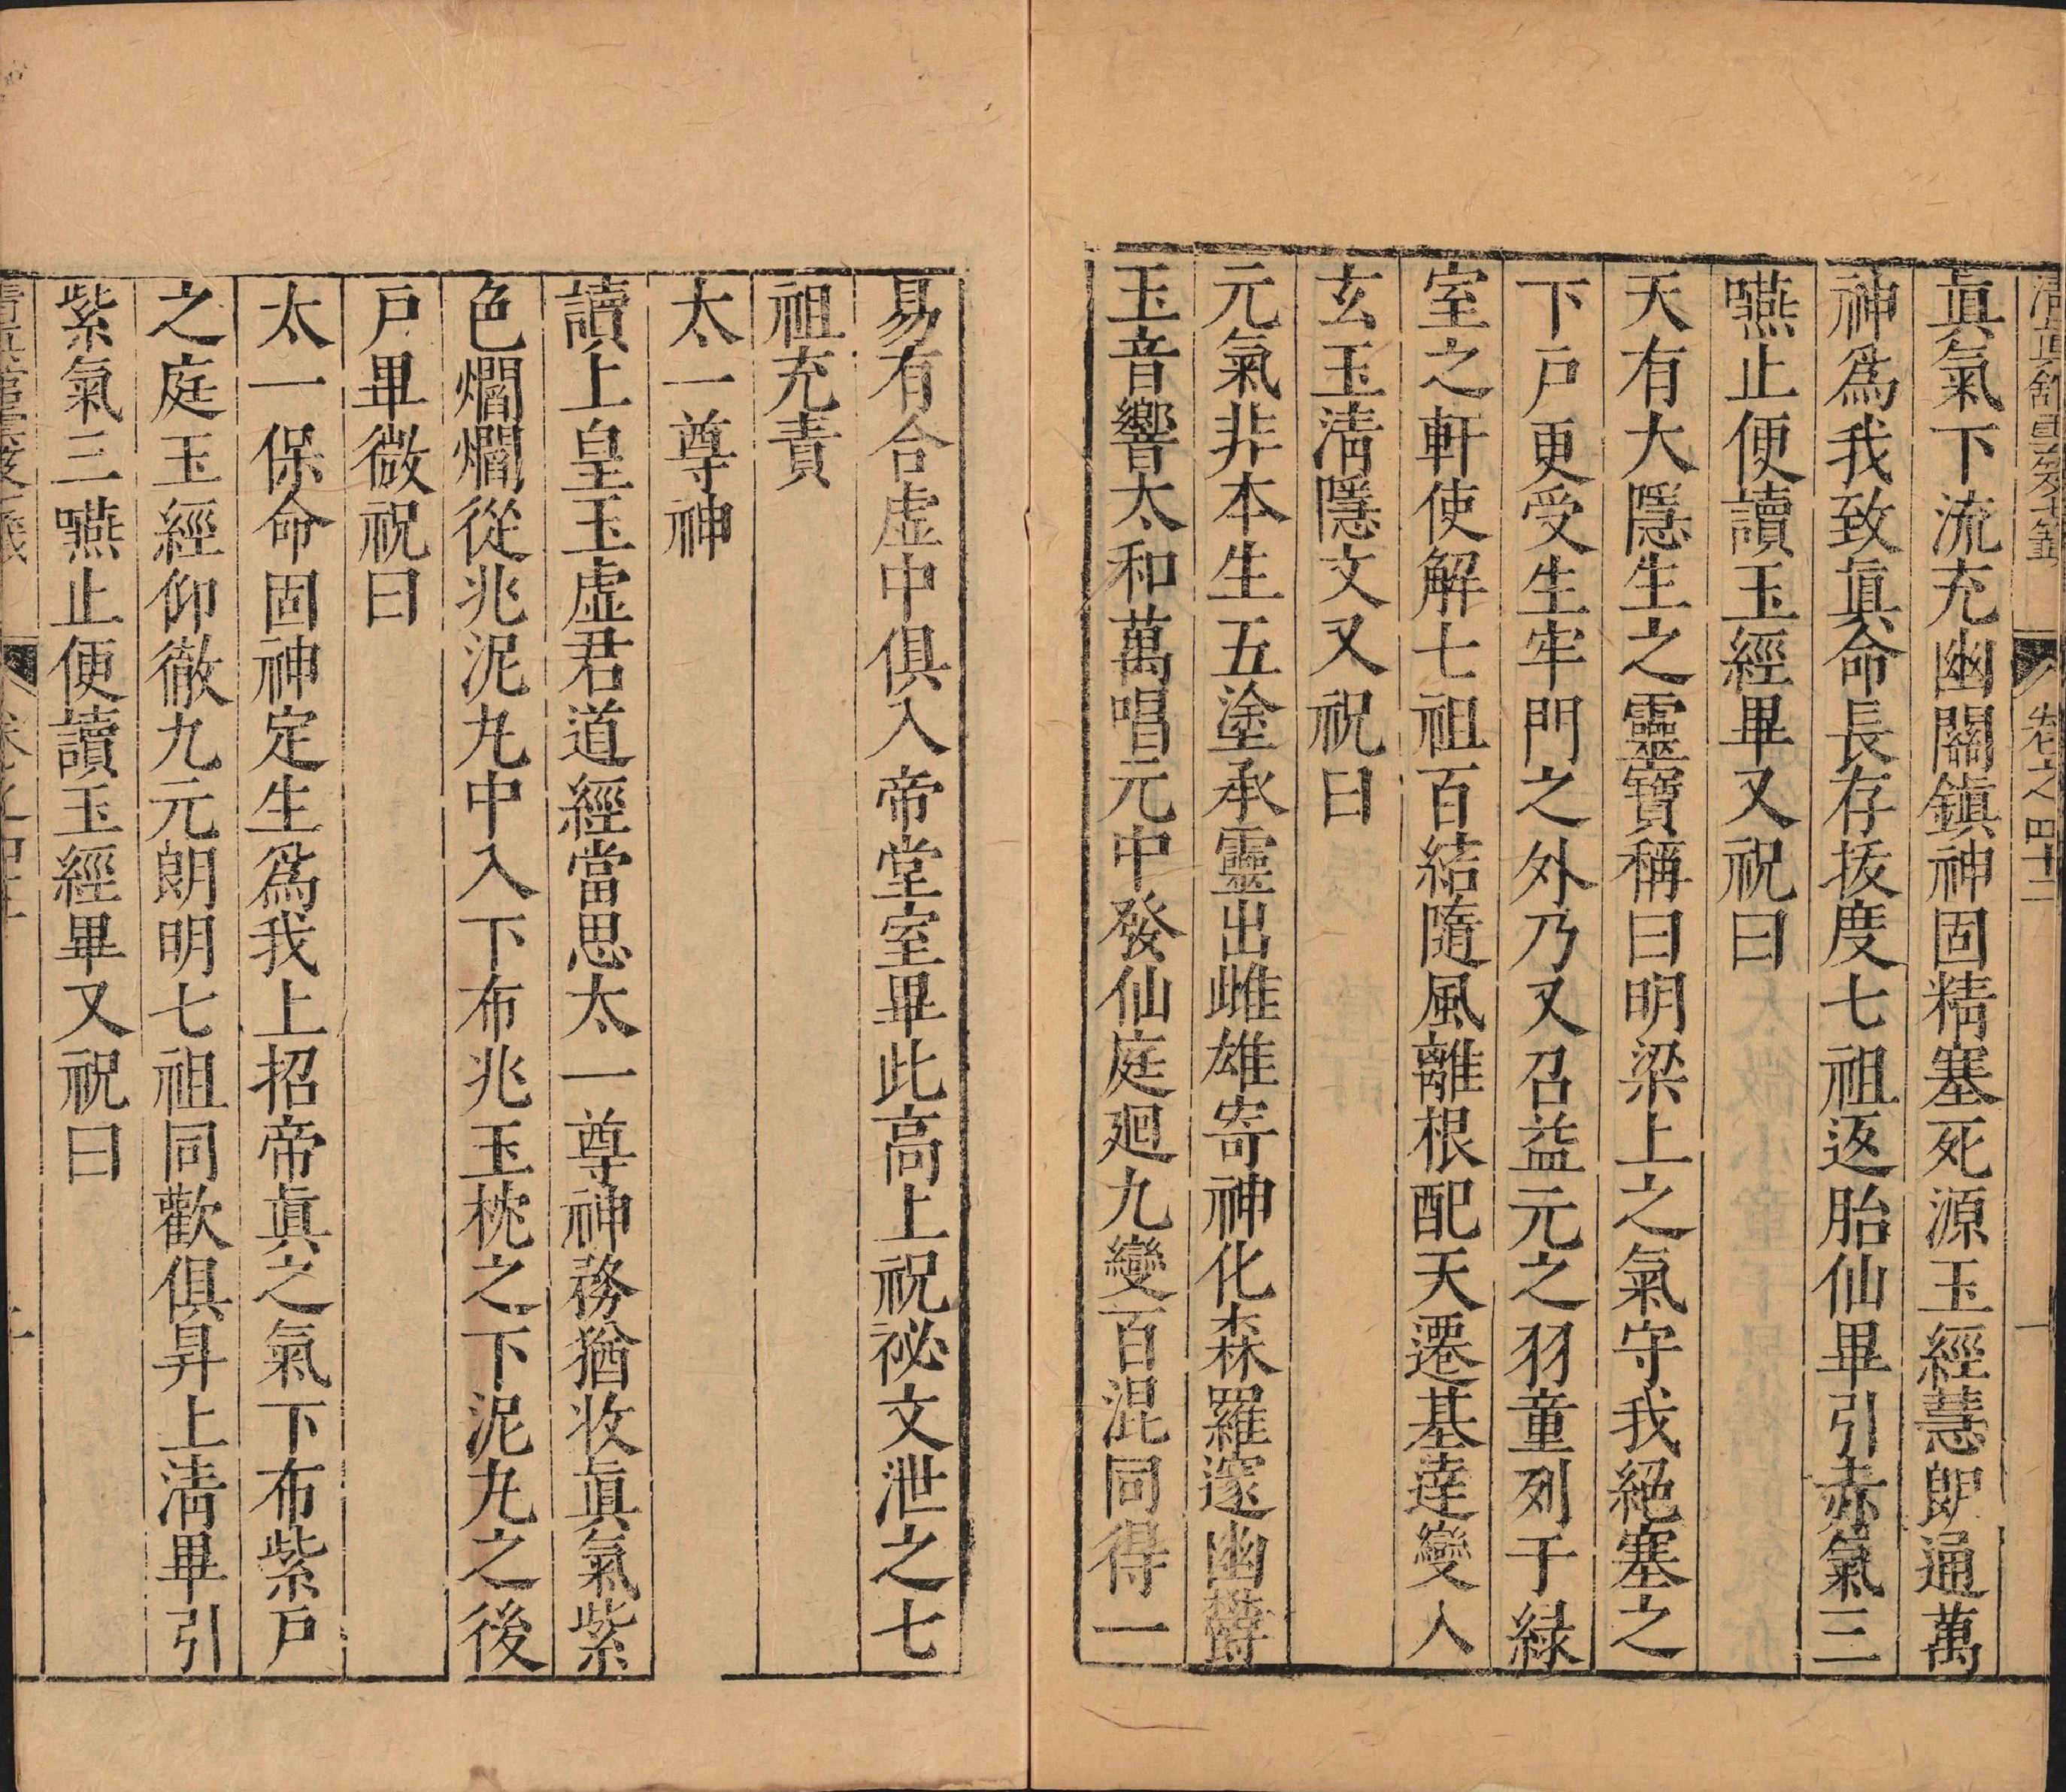 清真館雲笈七籤 卷之四十二 一
眞氣下流充幽關鎮神固精塞死源玉經慧朗通萬
神爲我致眞命長存拔度七祖返胎仙畢引赤氣三
嚥止便讀玉經畢又祝曰
天有大隱生之靈寶稱曰明梁上之氣守我絕塞之
下戸更受生牢門之外乃又召益元之羽童列于綠
室之軒使解七祖百結隨風離根配天遷基達變入
玄玉淸隱文又祝曰
元氣非本生五塗承靈出雌雄寄神化森羅邃幽欝
玉音響太和萬唱元中發仙庭廻九變百混同得一
易有合虛中俱入帝堂室畢此高上祝祕文泄之七
祖充責
太一尊神
讀上皇玉虛君道經當思太一尊神務猶收眞氣紫
色爓爓從兆泥丸中入下布兆玉枕之下泥丸之後
戸畢微祝曰
太一保命固神定生爲我上招帝眞之氣下布紫戸
之庭玉經仰徹九元朗明七祖同歡俱昇上淸畢引
紫氣三嚥止便讀玉經畢又祝曰